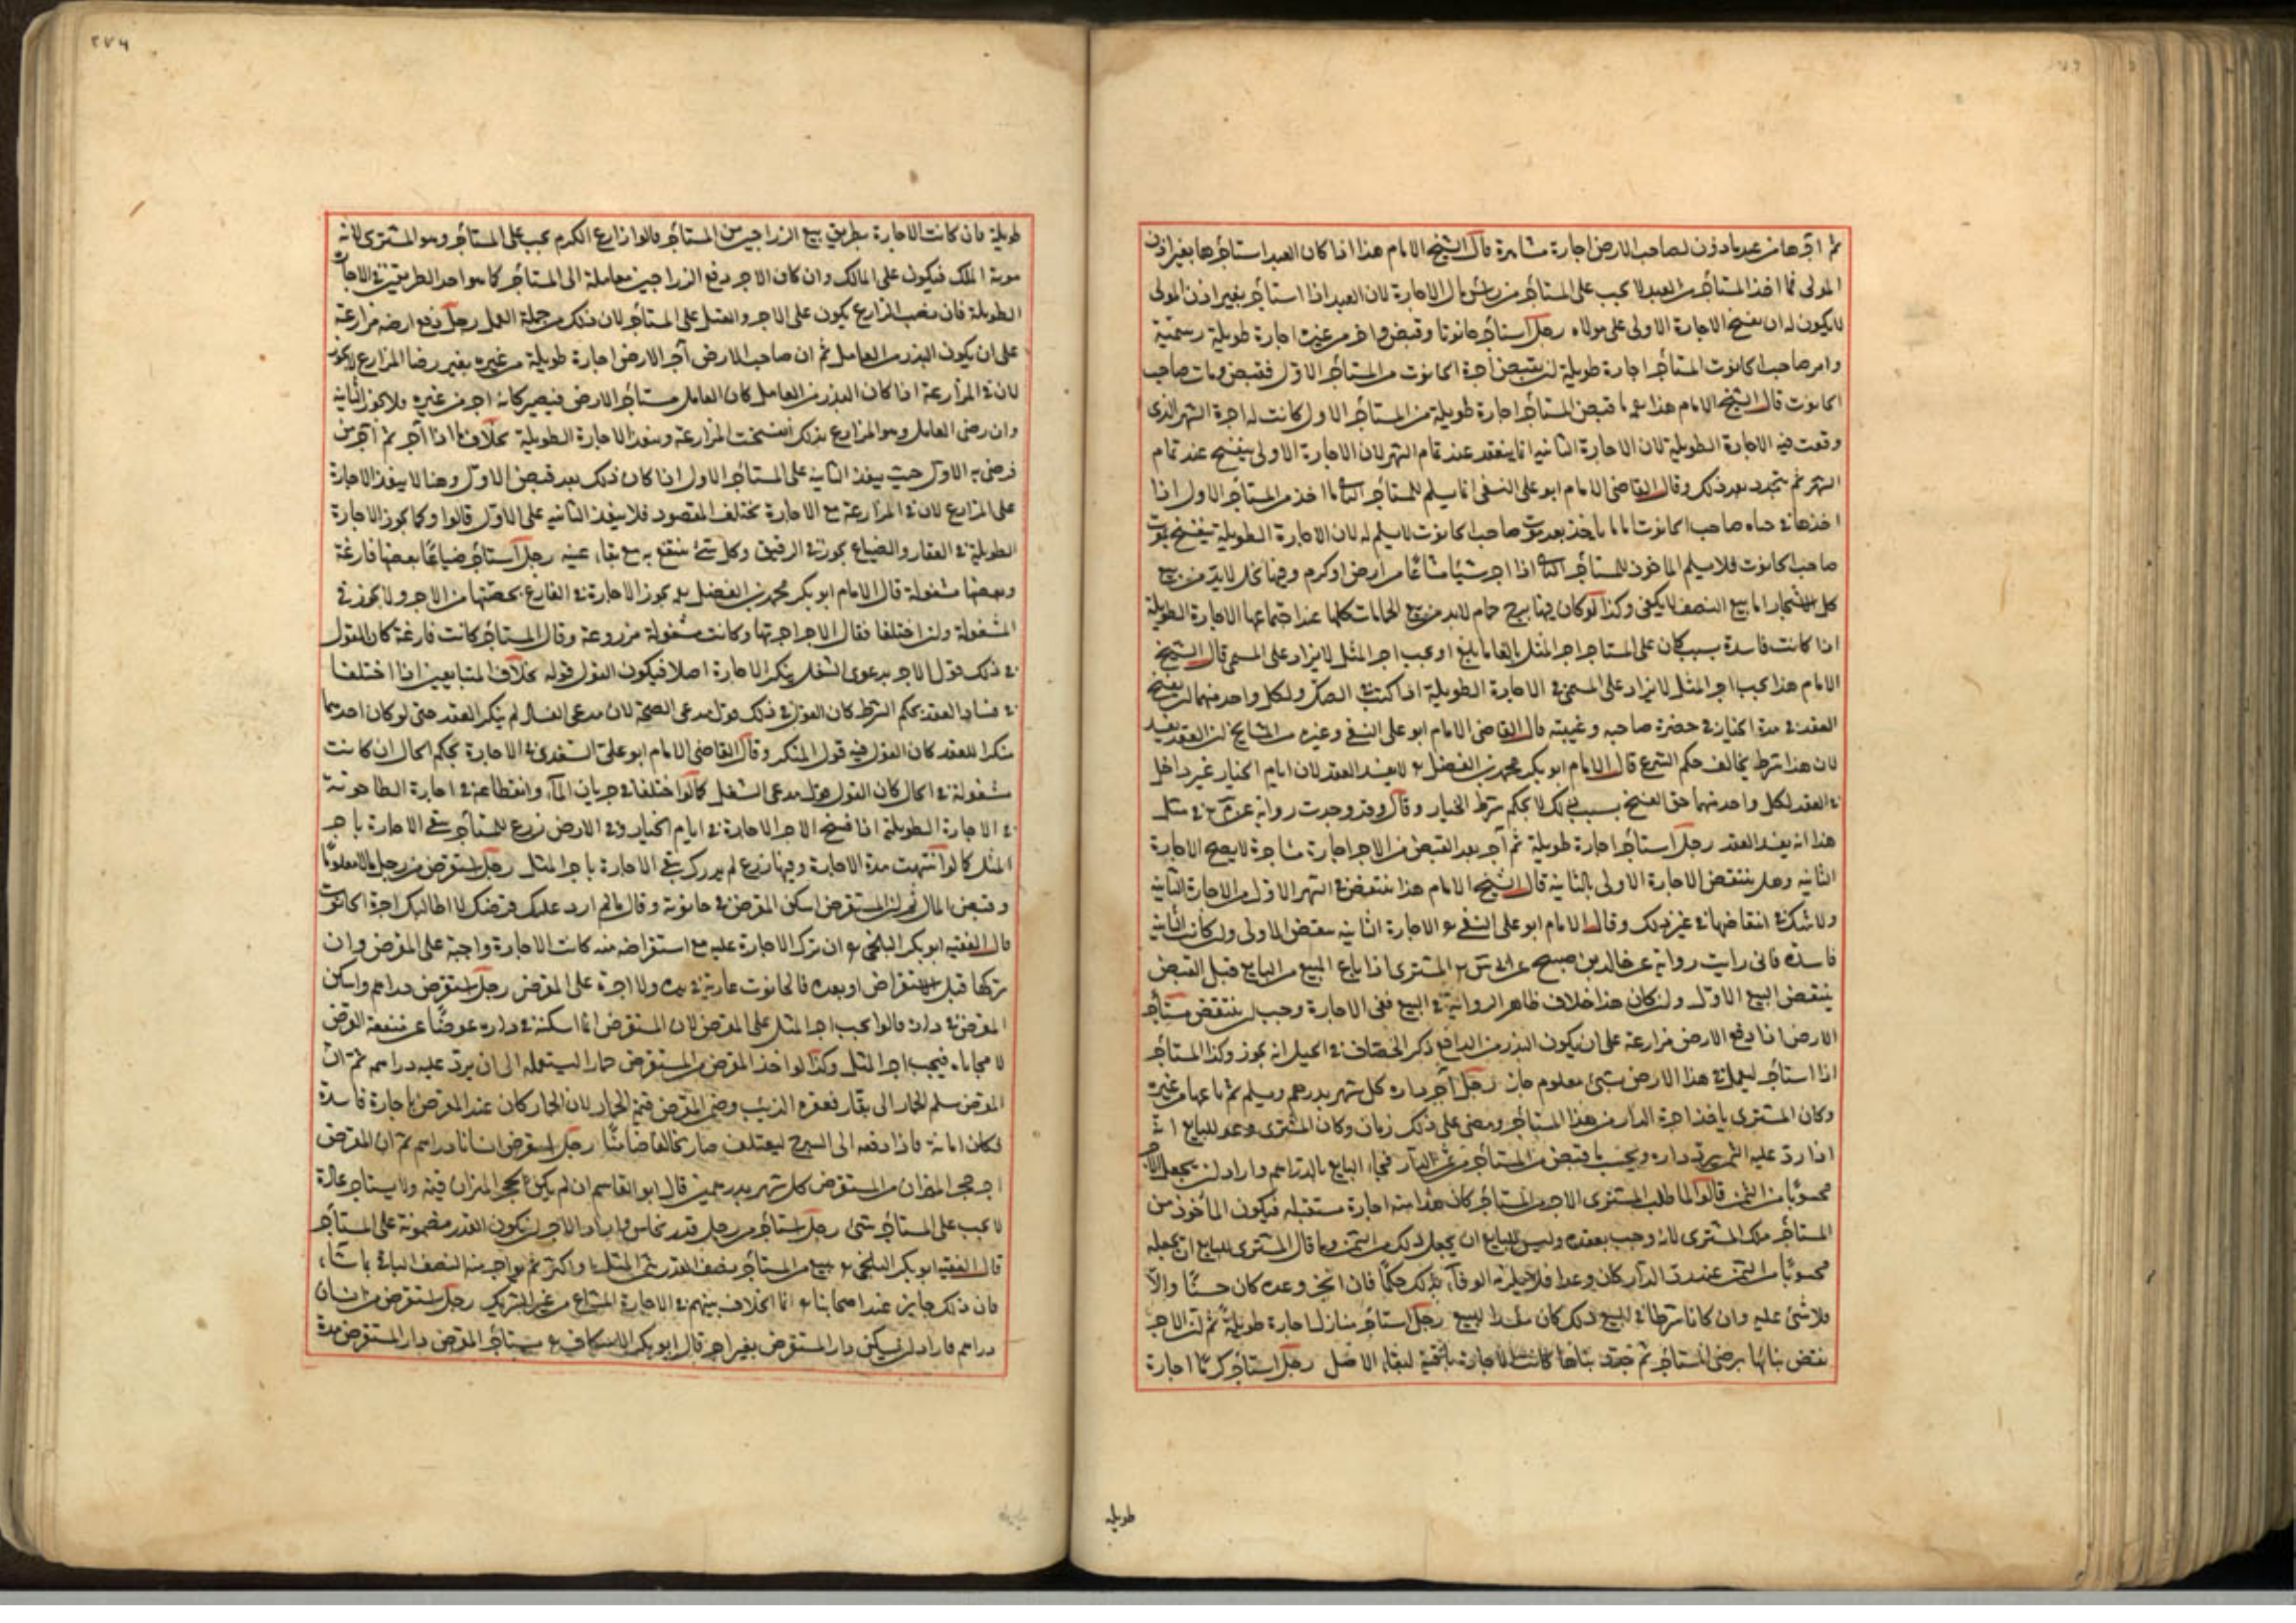 ثم آجرها من عبد مأذون لصاحب الارض اجارة مشاهرة قال الشيخ الامام هذا اذا كان العبد استأجرها بغير اذن
المولى فما اخذ المستأجر من العبد لا يجب على المستأجر من رأس مال الاجارة لان العبد اذا استأجر بغير اذن المولى
لا يكون له ان يفسخ الاجارة الاولى على مولاه رجل استأجر حانوتا وقبض وآجر من غيره اجارة طويلة رسمية
وامر صاحب الحانوت المستأجر اجارة طويلة ان يقبض اجرة الحانوت من المستأجر الاول فقبض ومات صاحب
الحانوت قال الشيخ الامام هذا ما قبض المستأجر اجارة طويلة من المستأجر الاول كانت له اجرة الشهر الذى
وقعت فيه الاجارة الطويلة لان الاجارة الثانية انما ينعقد عند تمام الشهر لان الاجارة الاولى ينفسخ عند تمام
الشهر ثم يتجدد بعد ذلك وقال القاضى الامام ابو على النسفى انما يسلم للمستأجر الثانى ما اخذ من المستأجر الاول اذا
اخذها فى حياه صاحب الحانوت اما ما ياخذ بعد موت صاحب الحانوت لا يسلم له لان الاجارة الطويلة ينفسخ بموت
صاحب الحانوت فلا يسلم الماخوذ للمستأجر الثانى اذا اجر شيئا مشاعا من ارض او كرم وفيها نخل لا بد من بيع
كل الاشجار اما بيع النصف لا يكفى وكذا لو كان فيها برج حمام لا بد من بيع الحمامات كلها عند اجتماعها الاجارة الطويلة
اذا كانت فاسدة بسبب كان على المستاجر اجر المثل بالغا ما بلغ او يجب اجر المثل لا يزاد على المسمى قال الشيخ
الامام هذا يجب اجر المثل لا يزاد على المسمى فى الاجارة الطويلة اذا كتب فى الصك ولكل واحد منهما ان يفسخ
العقد فى مدة الخيار فى حضرة صاحبه وغيبته قال القاضى الامام ابو على النسفى وغيره من المشايخ ان العقد يفسد
لان هذا شرط يخالف حكم الشرع قال الامام ابو بكر محمد بن الفضل لا يفسد العقد لان ايام الخيار غير داخل
فى العقد لكل واحد منهما حق الفسخ بسبب ذلك لا بحكم شرط الخيار وقال وقد وجدت رواية عن فى مثل
هذا انه يفسد العقد رجل استأجر اجارة طويلة ثم آجر بعد القبض من الاجر اجارة مشاهرة لا يصح الاجارة
الثانية وهل ينتقض الاجارة الاولى بالثانية قال الشيخ الامام هذا ينتقض فى الشهر الاول من الاجارة الثانية
ولا شك فى انتقاضها فى غير ذلك وقال الامام ابو على النسفى الاجارة الثانية ينقض الاولى وان كانت الثانية
فاسدة فانى رايت رواية عن خالد بن صبيح عن المشترى اذا باع المبيع من البايع قبل القبض
ينتقض البيع الاول وان كان هذا خلاف ظاهر الرواية فى البيع ففى الاجارة وجب ان ينتقض مستأجر
الارض اذا دفع الارض مزارعة على ان يكون البذر من الدافع ذكر الخصاف فى الحيل انه يجوز وكذا المستأجر
اذا استأجر ليعمل فى هذا الارض بشىء معلوم جاز رجل آجر داره كل شهر بدرهم ويسلم ثم باعها من غيره
وكان المشترى ياخذ اجرة الدار من هذا المستأجر ومضى على ذلك زمان وكان المشترى وعد للبايع انه
اذا رد عليه الثمن يرد داره ويحسب ما قبض من المستأجر من ثمن الدار فجاء البايع بالدراهم واراد ان يجعل الاجر
محسوبا من الثمن قالوا لما طلب المشترى الاجر من المستاجر كان هذا منه اجارة مستقبلة فيكون المأخوذ من
المستأجر ملك المشترى لانه وجب بعقده وليس للبايع ان يجعل ذلك من الثمن وما قال المشترى للبايع ان يجعله
محسوبا من الثمن عند رد الدار كان وعدا فلا يلزمه الوفاء بذلك حكما فان انجز وعده كان حسنا والا
فلا شىء عليه وان كانا شرطا فى البيع ذلك كان مفسدا للبيع رجل استأجر منازل اجارة طويلة ثم ان الاجر
نقض بناها برضى المستأجر ثم جدد بناها كانت الاجارة باقية لبقاء الاصل رجل استأجر كرما اجارة
طويلة
٢٧٤
طويلة فان كانت الاجارة بطريق بيع الزراجين من المستأجر قالوا زارع الكرم يجب على المستأجر وهو المشترى لانه
مونة الملك فيكون على المالك وان كان الاجر دفع الزراجين معاملة الى المستأجر كما هو احد الطريقين فى الاجارة
الطويلة فان نصب الزارع يكون على الاجر والعمل على المستأجر لان ذلك من جملة العمل رجل دفع ارضه مزارعة
على ان يكون البذر من العامل ثم ان صاحب الارض آجر الارض اجارة طويلة من غيره بغير رضا المزارع لا يجوز
لان فى المزارعة اذا كان البذر من العامل كان العامل مستأجر الارض فيصير كانه اجر من غيره ولا يجوز الثانية
وان رضى العامل وهو المزارع بذلك انفسخت المزارعة وينفذ الاجارة الطويلة بخلاف ما اذا آجر ثم آجر من
فرضى به الاول حيث ينفذ الثانية على المستأجر الاول اذا كان ذلك بعد قبض الاول وهنا لا ينفذ الاجارة
على المزارع لان فى المزارعة مع الاجارة تختلف المقصود فلا ينفذ الثانية على الاول قالوا وكما يجوز الاجارة
الطويلة فى العقار والضياع يجوز فى الرقيق وكل شىء ينتفع به مع بقاء عينه رجل استأجر ضياعا بعضها فارغة
وبعضها مشغولة قال الامام ابو بكر محمد بن الفضل يجوز الاجارة فى الفارغ بحصتها من الاجر ولا يجوز فى
المشغولة وان اختلفا فقال الاجر اجرتها وكانت مشغولة مزروعة وقال المستأجر كانت فارغة كان القول
فى ذلك قول الاجر بدعوى الشغل ينكر الاجارة اصلا فيكون القول قوله بخلاف المتبايعين اذا اختلفا
فى فساد العقد بحكم الشرط كان القول فى ذلك قول مدعى الصحة لان مدعى الفساد لم ينكر العقد حتى لو كان احدهما
منكرا للعقد كان القول فيه قول المنكر وقال القاضى الامام ابو على السغدى فى الاجارة يحكم الحال ان كانت
مشغولة فى الحال كان القول قول مدعى الشغل كما لو اختلفا فى جريان الماء وانقطاعه فى اجارة الطاحونة
فى الاجارة الطويلة اذا فسخ الاجر الاجارة فى ايام الخيار وفى الارض زرع للمستأجر يبقى الاجارة باجر
المثل كما لو انتهت مدة الاجارة وفيها زرع لم يدرك يبقى الاجارة باجر المثل رجل استقرض من رجل مالا معلوما
وقبض المال ثم ان المستقرض اسكن المقرض فى حانوته وقال ما لم ارد عليك قرضك لا اطالبك اجرة الحانوت
قال الفقيه ابو بكر البلخى ان ترك الاجارة عليه مع استقراضه منه كانت الاجارة واجبة على المقرض وان
تركها قبل الاستقراض او بعده فالحانوت عارية فى يده ولا اجرة على المقرض رجل استقرض دراهم واسكن
المقرض فى داره قالوا يجب اجر المثل على المقرض لان المستقرض انما اسكنه فى داره عوضا عن منفعة القرض
لا مجانا فيجب اجر المثل وكذا لو اخذ المقرض من المستقرض حمارا ليستعمله الى ان يرد عليه دراهمه ثم ان
المقرض سلم الحمار الى بقار فعقره الذئب وضمن المقرض قيمة الحمار لان الحمار كان عند المقرض باجارة فاسدة
فكان امانة فاذا دفعه الى السرح ليعتلف صار مخالفا ضامنا رجل استقرض انسانا دراهم ثم ان المقرض
اجر حجر الميزان من المستقرض كل شهر بدرهمين قال ابو القاسم ان لم يكن لحجر الميزان قيمة ولا يستاجر عادة
لا يجب على المستأجر شىء رجل استأجر من رجل قدر نحاس واراد الاجر ان يكون القدر مضمونة على المستأجر
قال الفقيه ابو بكر البلخى يبيع من المستأجر نصف القدر بثمن المثل او اكثر ثم يواجر منه النصف الباقى بما شاء
فان ذلك جايز عند اصحابنا انما الخلاف بينهم فى الاجارة المشاع من غير الشريك رجل استقرض من انسان
دراهم فاراد ان يسكن دار المستقرض بغير اجر قال ابو بكر الاسكاف يستأجر المقرض دار المستقرض مدة